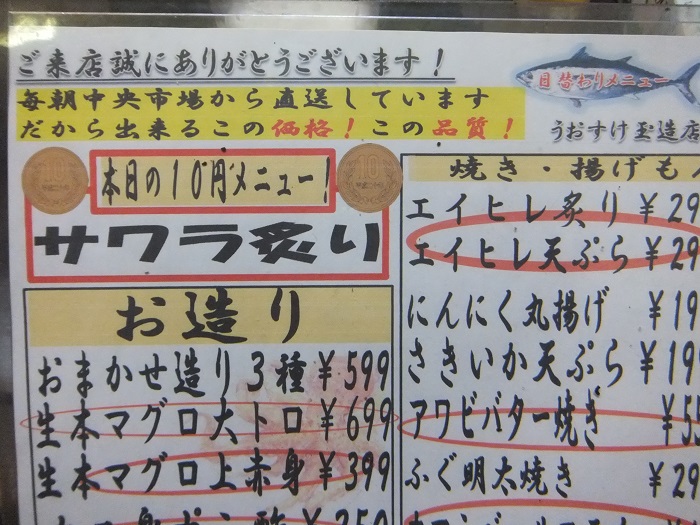 ご来店誠にありがとうございます！
毎朝中央市場から直送しています
だから出来るこの価格！この品質！
目替わりメニュー
うおすけ玉造店
10
本日の10円メニュー！
10
サワラ炙り
お造り
おまかせ造り3種￥599
生本マグロ大トロ￥699
生本マグロ上赤身￥399
焼き・揚げも
エイヒレ炙り￥29
エイヒレ天ぷら￥29
にんにく丸揚げ ￥19
さきいか天ぷら ￥19
アワビバター焼き ￥5
ふぐ明太焼き ￥29